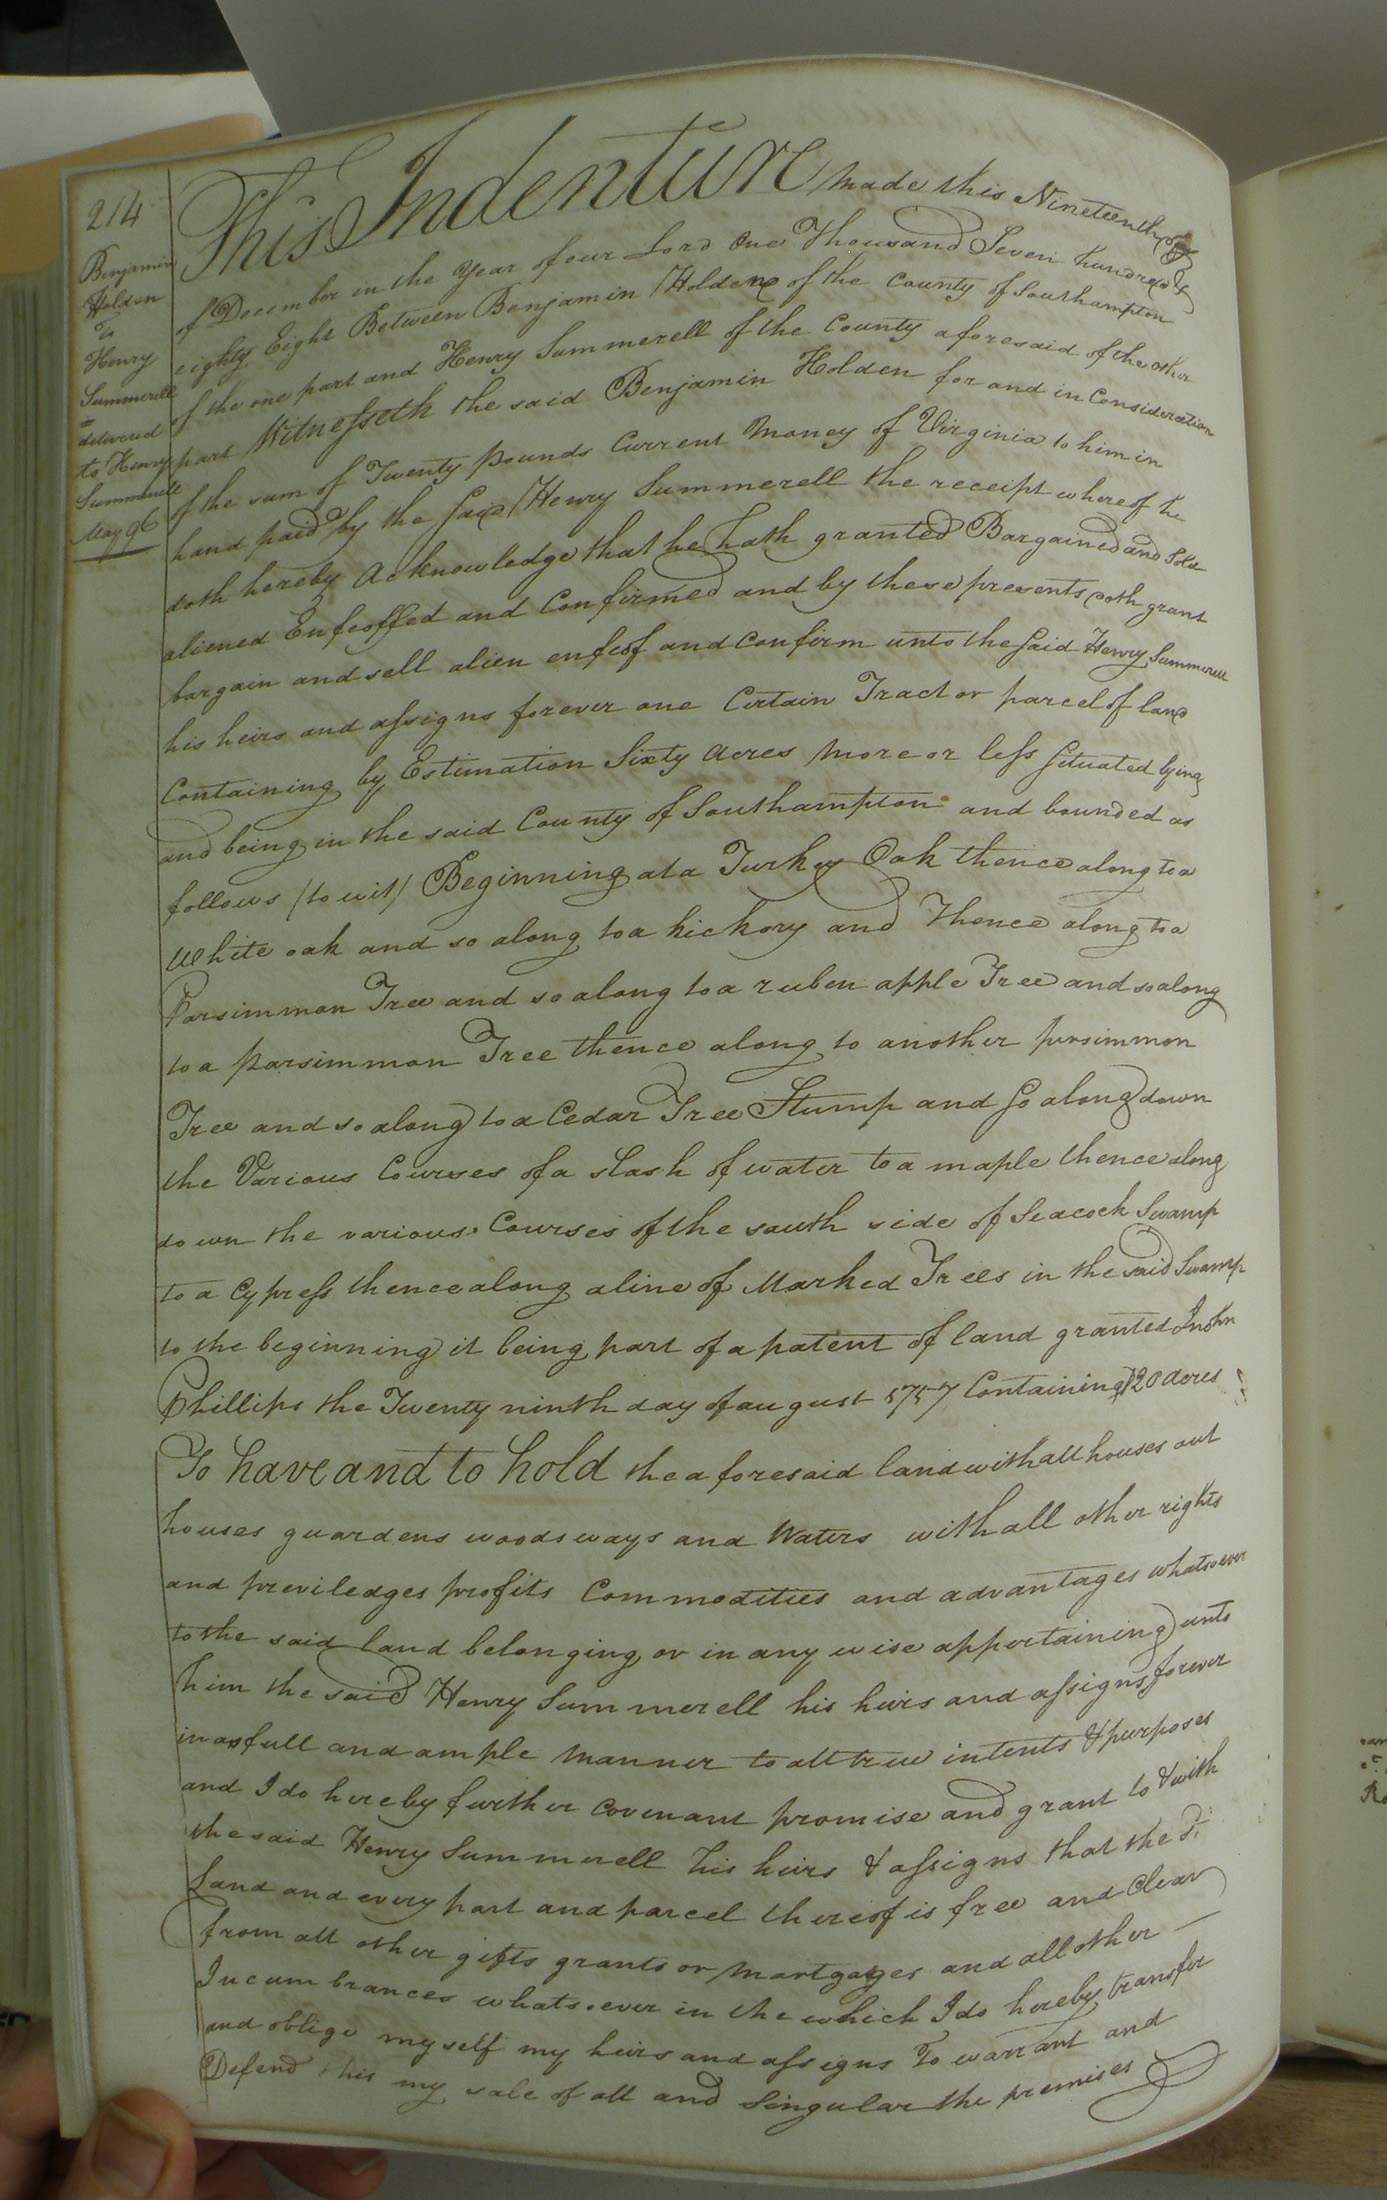 214
Benjamin
Holden
To
Henry
Summerell
=
delivered
to Henry
Summerell
May 96
This Indenture made this Nineteenth day
of December in the Year of our Lord One Thousand Seven hundred &
eighty Eight Between Benjamin Holden of the County of Southampton
of the one part and Henry Summerell of the County aforesaid of the other
part Witnesseth the said Benjamin Holden for and in Consideration
of the sum of Twenty pounds Current Money of Virginia to him in
hand paid by the said Henry Summerell the receipt whereof he
doth hereby acknowledge that he hath granted Bargained and Sold
aliened Enfeoffed and Confirmed and by these presents doth grant
bargain and sell alien enfeof and Confirm unto the said Henry Summerell
his heirs and assigns forever one Certain Tract or parcel of land
Containing by Estimation Sixty acres more or less situated lying
and being in the said County of Southampton and bounded as
follows (to wit) Beginning at a Turkey Oak thence along to a
White oak and so along to a hickory and Thence along to a
Parsimmon Tree and so along to a ruben apple Tree and so along
to a parsimmon Tree thence along to another persimmon
Tree and so along to a Cedar Tree Stump and so along down
the Various Courses of a slash of water to a maple thence along
down the various Courses of the south side of Seacock Swamp
to a Cypress thence along a line of Marked Trees in the said Swamp
to the beginning it being part of a patent of land granted John
Phillips the Twenty ninth day of august 1757 Containing 120 acres
To have and to hold the aforesaid land with all houses out
houses guardens woods ways and Waters with all other rights
and previledges profits Commodities and advantages whatsoever
to the said land belonging or in any wise appertaining unto
him the said Henry Summerell his heirs and assigns forever
in as full and ample manner to all trew intents & purposes
and I do hereby further Covenant promise and grant to & with
the said Henry Summerell his heirs & assigns that the sd.
Land and every part and parcel thereof is free and Clear
from all other gifts grants or Mortgages and all other
Incumbrances whatsoever in the which I do hereby transfer
and oblige myself my heirs and assigns To warrant and
Defend this my sale of all and Singular the premises